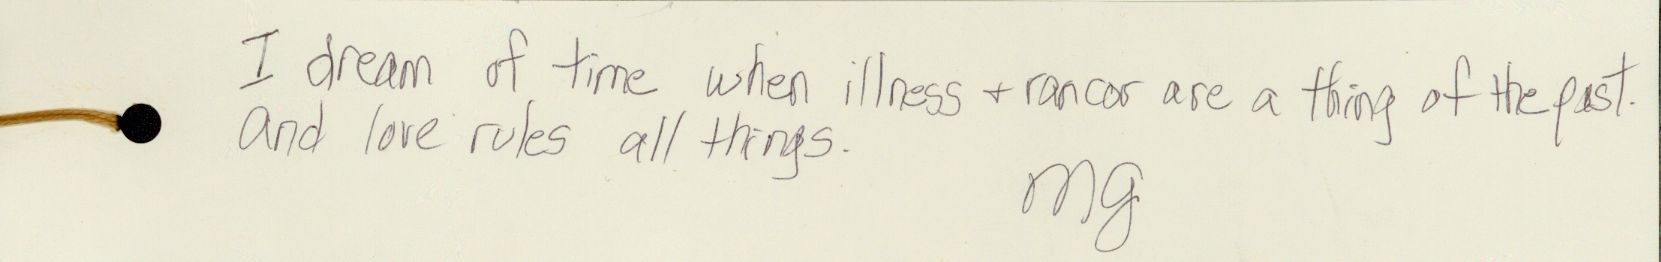 I dream of time when illness + rancor are a thing of the past.
And love rules all things.
MG